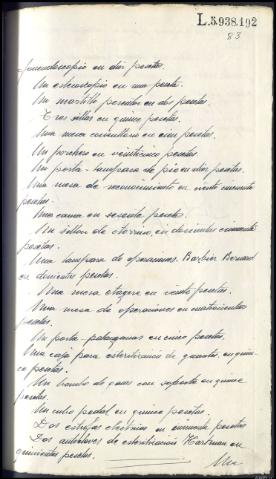 L.5.938.192
83
fonendoscopio en diez pesetas.
Un estetoscopio en una peseta.
Un martillo percutor en dos pesetas.
Tres sillas en quince pesetas.
Una mesa en cien pesetas.
Un en veinticinco pesetas.
Un porta-lampara de pie en diez pesetas.
Una mesa de reconocimiento en ciento cincuenta
pesetas.
Una cama en sesenta pesetas.
Un sillon de en doscientas cincuenta
pesetas.
Una lampara de operaciones Barbier Bernard
en doscientas pesetas.
Una mesa etagere en veinte pesetas.
Una mesa de operaciones en cuatrocientas
pesetas.
Un porta-palanganas en cinco pesetas.
Una caja para esterilizacion de guantes en quin-
ce pesetas.
Un bombo de gasas con soporte en quince
pesetas.
Un cubo pedal en quince pesetas.
Dos estufas electricas en cincuenta pesetas
Dos autoclaves de esterilizacion Hartman en
quinientas pesetas.
Una